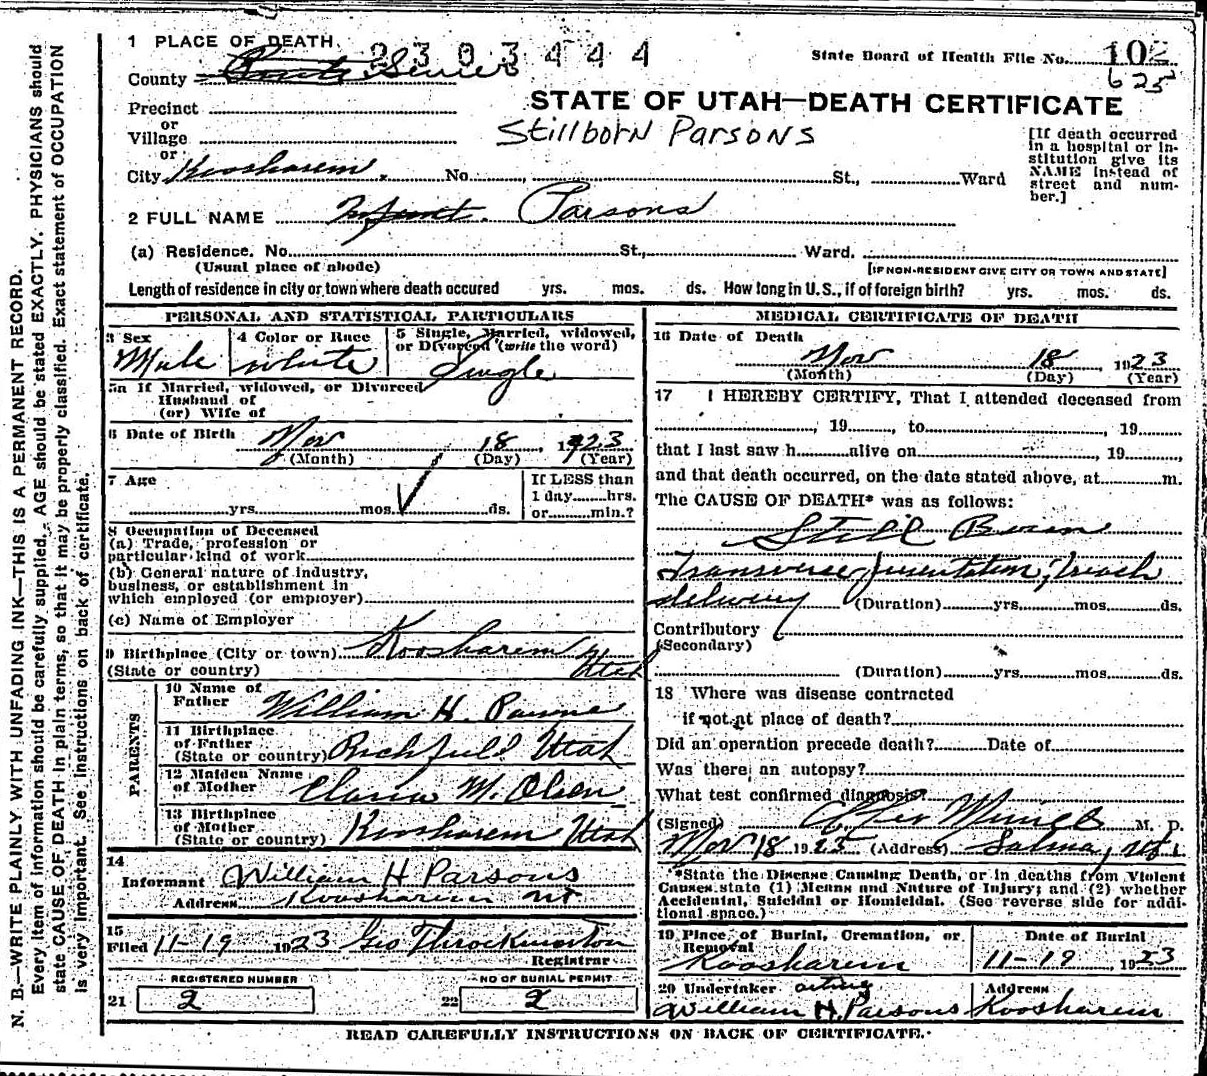 1 PLACE OF DEATH
2303444
State Board of Health File No. 102
County Sevier
625
STATE OF UTAH—DEATH CERTIFICATE
Precinct
or
Village
or
Stillborn Parsons
City Koosharem. No. St., Ward
[If death occurred
in a hospital or in-
stitution give its
NAME instead of
street and num-
ber.]
2 FULL NAME Infant Parsons
(a) Residence. No. St., Ward.
(Usual place of abode)
[IF NON-RESIDENT GIVE CITY OR TOWN AND STATE]
Length of residence in city or town where death occured yrs. mos. ds. How long in U.S., if of foreign birth? yrs. mos. ds.
PERSONAL AND STATISTICAL PARTICULARS
3 Sex
Male
4 Color or Race
white
5 Single, Married, widowed,
or Divorced (write the word)
Single
5a If Married, widowed, or Divorced
Husband of
(or) Wife of
6 Date of Birth Nov 18 1923
(Month) (Day) (Year)
7 Age
yrs. mos. ds.
If LESS than
1 day hrs.
or min.?
8 Occupation of Deceased
(a) Trade, profession or
particular kind of work
(b) General nature of industry,
business, or establishment in
which employed (or employer)
(c) Name of Employer
9 Birthplace (City or town) Koosharem
(State or country) Utah
PARENTS
10 Name of
Father William H. Parsons
11 Birthplace
of Father
(State or country) Richfield Utah
12 Maiden Name
of Mother M. Olsen
13 Birthplace
of Mother
(State or country) Koosharem Utah
14
Informant William H Parsons
Address Koosharem Ut
15
Filed 11-19 1923 Geo Throckmorton
Registrar
REGISTERED NUMBER
21 2
NO OF BURIAL PERMIT
22 2
MEDICAL CERTIFICATE OF DEATH
16 Date of Death
Nov 18 1923
(Month) (Day) (Year)
17 I HEREBY CERTIFY, That I attended deceased from
, 19, to , 19
that I last saw h alive on , 19
and that death occurred, on the date stated above, at m.
The CAUSE OF DEATH* was as follows:
Still Born
Transverse presentation,
delivery (Duration) yrs. mos. ds.
Contributory
(Secondary)
(Duration) yrs. mos. ds.
18 Where was disease contracted
if not at place of death?
Did an operation precede death? Date of
Was there an autopsy?
What test confirmed diagnosis?
(Signed) M. D.
Nov 18 1923 (Address) Salina, Ut.
*State the Disease Causing Death, or in deaths from Violent
Causes state (1) Means and Nature of Injury; and (2) whether
Accidental, Suicidal or Homicidal. (See reverse side for addi-
tional space.)
19 Place of Burial, Cremation, or
Removal
Koosharem
Date of Burial
11-19, 1923
20 Undertaker acting
William H. Parsons
Address
Koosharem
READ CAREFULLY INSTRUCTIONS ON BACK OF CERTIFICATE.
N. B.—WRITE PLAINLY WITH UNFADING INK—THIS IS A PERMANENT RECORD.
Every item of information should be carefully supplied. AGE should be stated EXACTLY. PHYSICIANS should
state CAUSE OF DEATH in plain terms, so that it may be properly classified. Exact statement of OCCUPATION
is very important. See instructions on back of certificate.